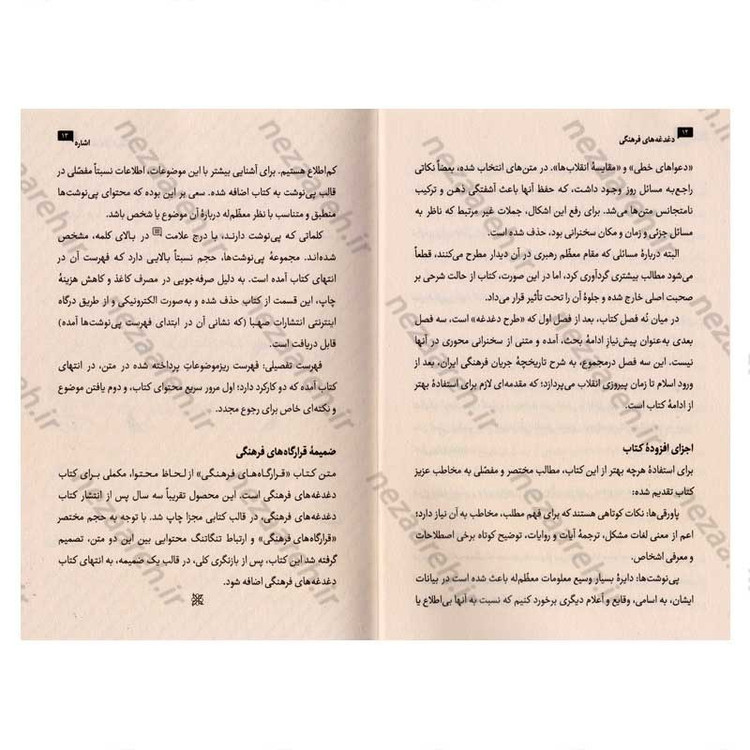 ۱۲
دغدغه‌های فرهنگی
«دعواهای خطی» و «مقایسهٔ انقلاب‌ها». در متن‌های انتخاب شده، بعضاً نکاتی
راجع‌به مسائل روز وجود داشت، که حفظ آنها باعث آشفتگی ذهن و ترکیب
نامتجانس متن‌ها می‌شد. برای رفع این اشکال، جملات غیر مرتبط که ناظر به
مسائل جزئی و زمان و مکان سخنرانی بود، حذف شده است.
البته دربارهٔ مسائلی که مقام معظّم رهبری در آن دیدار مطرح می‌کنند، قطعاً
می‌شود مطالب بیشتری گردآوری کرد، اما در این صورت، کتاب از حالت شرحی بر
صحبت اصلی خارج شده و جلوهٔ آن را تحت تأثیر قرار می‌داد.
در میان نُه فصل کتاب، بعد از فصل اول که «طرح دغدغه» است، سه فصل
بعدی به‌عنوان پیش‌نیازِ ادامهٔ بحث، آمده و متنی از سخنرانی محوری در آنها
نیست. این سه فصل درمجموع، به شرح تاریخچهٔ جریان فرهنگی ایران، بعد از
ورود اسلام تا زمان پیروزی انقلاب می‌پردازد؛ که مقدمه‌ای لازم برای استفادهٔ بهتر
از ادامهٔ کتاب است.
اجزای افزودهٔ کتاب
برای استفادهٔ هرچه بهتر از این کتاب، مطالب مختصر و مفصّلی به مخاطب عزیز
کتاب تقدیم شده:
پاورقی‌ها: نکات کوتاهی هستند که برای فهم مطلب، مخاطب به آن نیاز دارد؛
اعم از معنی لغات مشکل، ترجمهٔ آیات و روایات، توضیح کوتاه برخی اصطلاحات
و معرفی اشخاص.
پی‌نوشت‌ها: دایرهٔ بسیار وسیع معلومات معظّم‌له باعث شده است در بیانات
ایشان، به اسامی، وقایع و اَعلام دیگری برخورد کنیم که نسبت به آنها بی‌اطلاع یا
اشاره
۱۳
کم‌اطلاع هستیم. برای آشنایی بیشتر با این موضوعات، اطلاعات نسبتاً مفصّلی در
قالب پی‌نوشت به کتاب اضافه شده. سعی بر این بوده که محتوای پی‌نوشت‌ها
منطبق و متناسب با نظر معظّم‌له دربارهٔ آن موضوع یا شخص باشد.
کلماتی که پی‌نوشت دارند، با درج علامت در بالای کلمه، مشخص
شده‌اند. مجموعهٔ پی‌نوشت‌ها، حجم نسبتاً بالایی دارد که فهرست آن در
انتهای کتاب آمده است. به دلیل صرفه‌جویی در مصرف کاغذ و کاهش هزینهٔ
چاپ، این قسمت از کتاب حذف شده و به‌صورت الکترونیکی و از طریق درگاه
اینترنتی انتشارات صهبا (که نشانی آن در ابتدای فهرست پی‌نوشت‌ها آمده)
قابل دریافت است.
فهرست تفصیلی: فهرست ریزموضوعاتِ پرداخته شده در متن، در انتهای
کتاب آمده که دو کارکرد دارد؛ اول مرور سریع محتوای کتاب، و دوم یافتن موضوع
و نکته‌ای خاص برای رجوع مجدد.
ضمیمهٔ قرارگاه‌های فرهنگی
متن کتاب «قرارگاه‌های فرهنگی» از لحاظ محتوا، مکملی برای کتاب
دغدغه‌های فرهنگی است. این محصول تقریباً سه سال پس از انتشار کتاب
دغدغه‌های فرهنگی، در قالب کتابی مجزا چاپ شد. با توجه به حجم مختصر
«قرارگاه‌های فرهنگی» و ارتباط تنگاتنگ محتوایی بین این دو متن، تصمیم
گرفته شد این کتاب، پس از بازنگری کلی، در قالب یک ضمیمه، به انتهای کتاب
دغدغه‌های فرهنگی اضافه شود.
nezaareh.ir